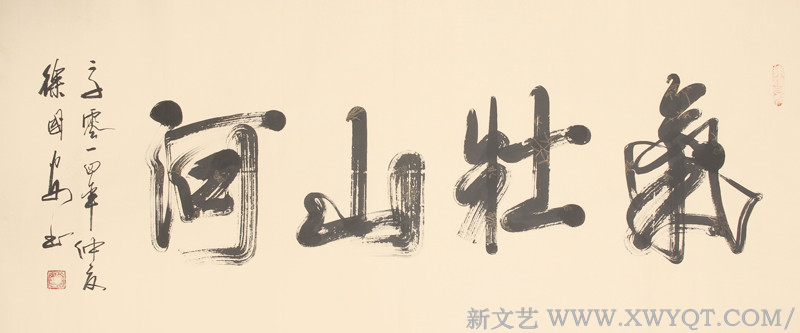 氣壯山河
二零一四年仲夏
徐國 書
新文艺 WWW.XWYQT.COM/